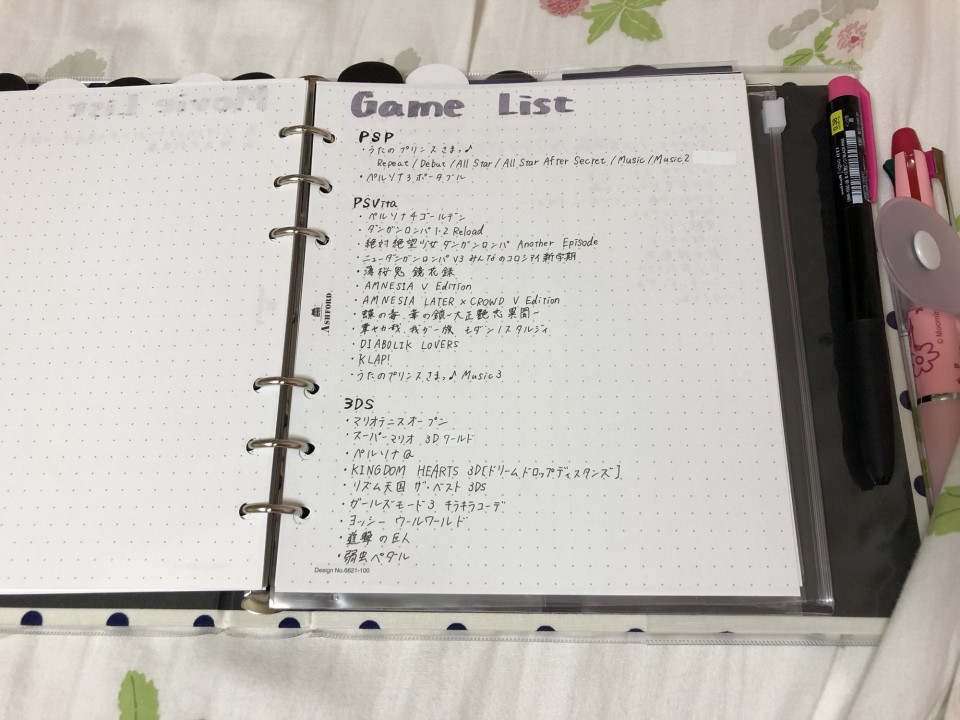 Movie List
Game List
PSP
・うたの プリンスさまっ♪
Repeat / Debut / All Star / All Star After Secret / Music / Music2
・ペルソナ3 ポータブル
PSVita
・ペルソナ4 ゴールデン
・ダンガンロンパ 1・2 Reload
・絶対絶望少女 ダンガンロンパ Another Episode
・ニューダンガンロンパ V3 みんなのコロシアイ新学期
・薄桜鬼 鏡花録
・AMNESIA V Edition
・AMNESIA LATER × CROWD V Edition
・蝶の毒 華の鎖〜大正艶恋異聞〜
・華ヤカ哉、我ガ一族 モダンノスタルジィ
・DIABOLIK LOVERS
・KLAP!
・うたのプリンスさまっ♪ Music3
3DS
・マリオテニスオープン
・スーパーマリオ 3Dワールド
・ペルソナQ
・KINGDOM HEARTS 3D[ドリームドロップディスタンズ]
・リズム天国 ザ・ベスト 3DS
・ガールズモード3 キラキラコーデ
・ヨッシー ウールワールド
・進撃の巨人
・弱虫ペダル
Design No.6621-100
ASHFORD